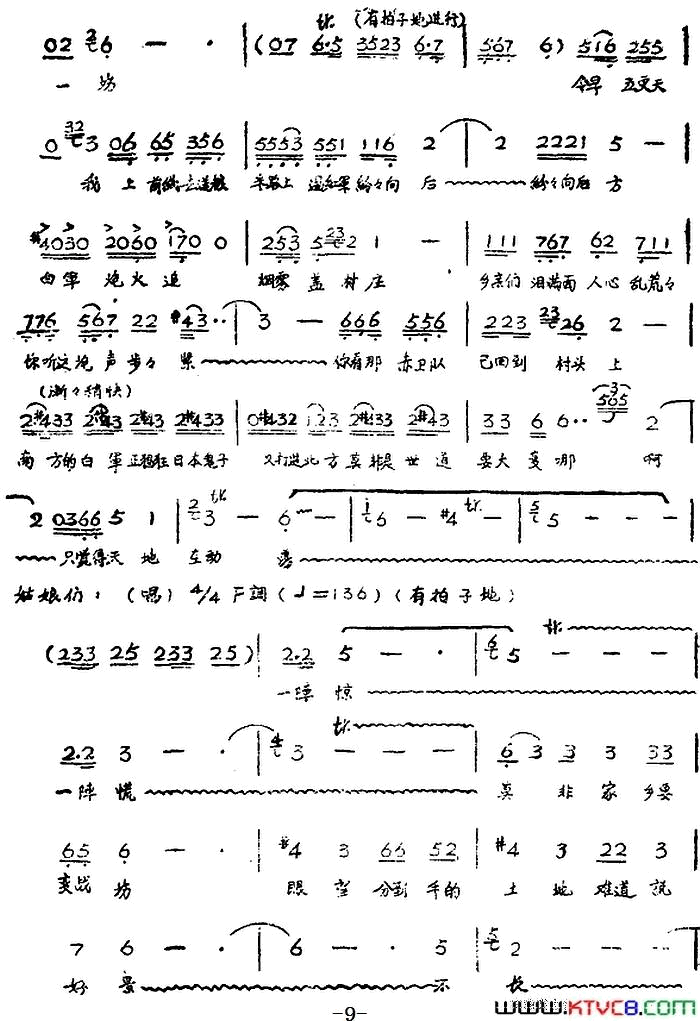 tr. (有拍子地进行)
02 2 6 — · (07 6·5 3523 6·7 567 6) 516 255
一 场 今早 五更天
0 32 3 06 65 356 5553 551 116 2 2 2221 5 —
我 上 前线去送粮 来路上 遇红军 纷々向 后 纷々向后 方
#4030 2060 170 0 253 5 23 2 1 — 111 767 62 711
白军 炮火追 烟雾 盖 村庄 乡亲们 泪满面 人心 乱荒々
776 567 22 #43·· 3 — 666 556 223 23 26 2 —
你听这炮 声 步々 紧 你看那 赤卫队 已回到 村头 上
(渐々稍快)
2#433 2#433 2#433 2#433 0#432 123 2#43 2#433 33 6 6·· 3 565 2
南 方的白 军 日本鬼子 又打进北 方 莫非是 世 道 要大变哪 啊
2 0366 5 1 2 3 — 6 — 1 6 — #4 — 5 5 — — —
只觉得天 地 在动 荡
姑娘们: (唱) 4/4 F調 (♩=136) (有拍子地)
(233 25 233 25) 2·2 5 — · 6 5 — — —
一阵 惊
2·2 3 — · 4 3 — — — 6 3 3 3 33
一阵 慌 莫 非 家 乡要
65 6 — · #4 3 66 52 #4 3 22 3
变战 场 眼 望 分到 手的 土 地 难道 說
7 6 — · 6 — · 5 5 2 — — —
好 景 不 长
-9-
WWW.KTVC8.COM